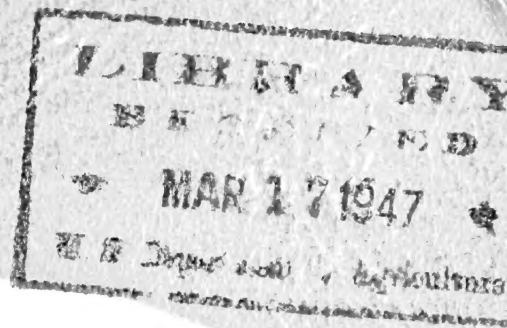 LIBRARY
RECEIVED
MAR 17 1947
U. S. Department of Agriculture